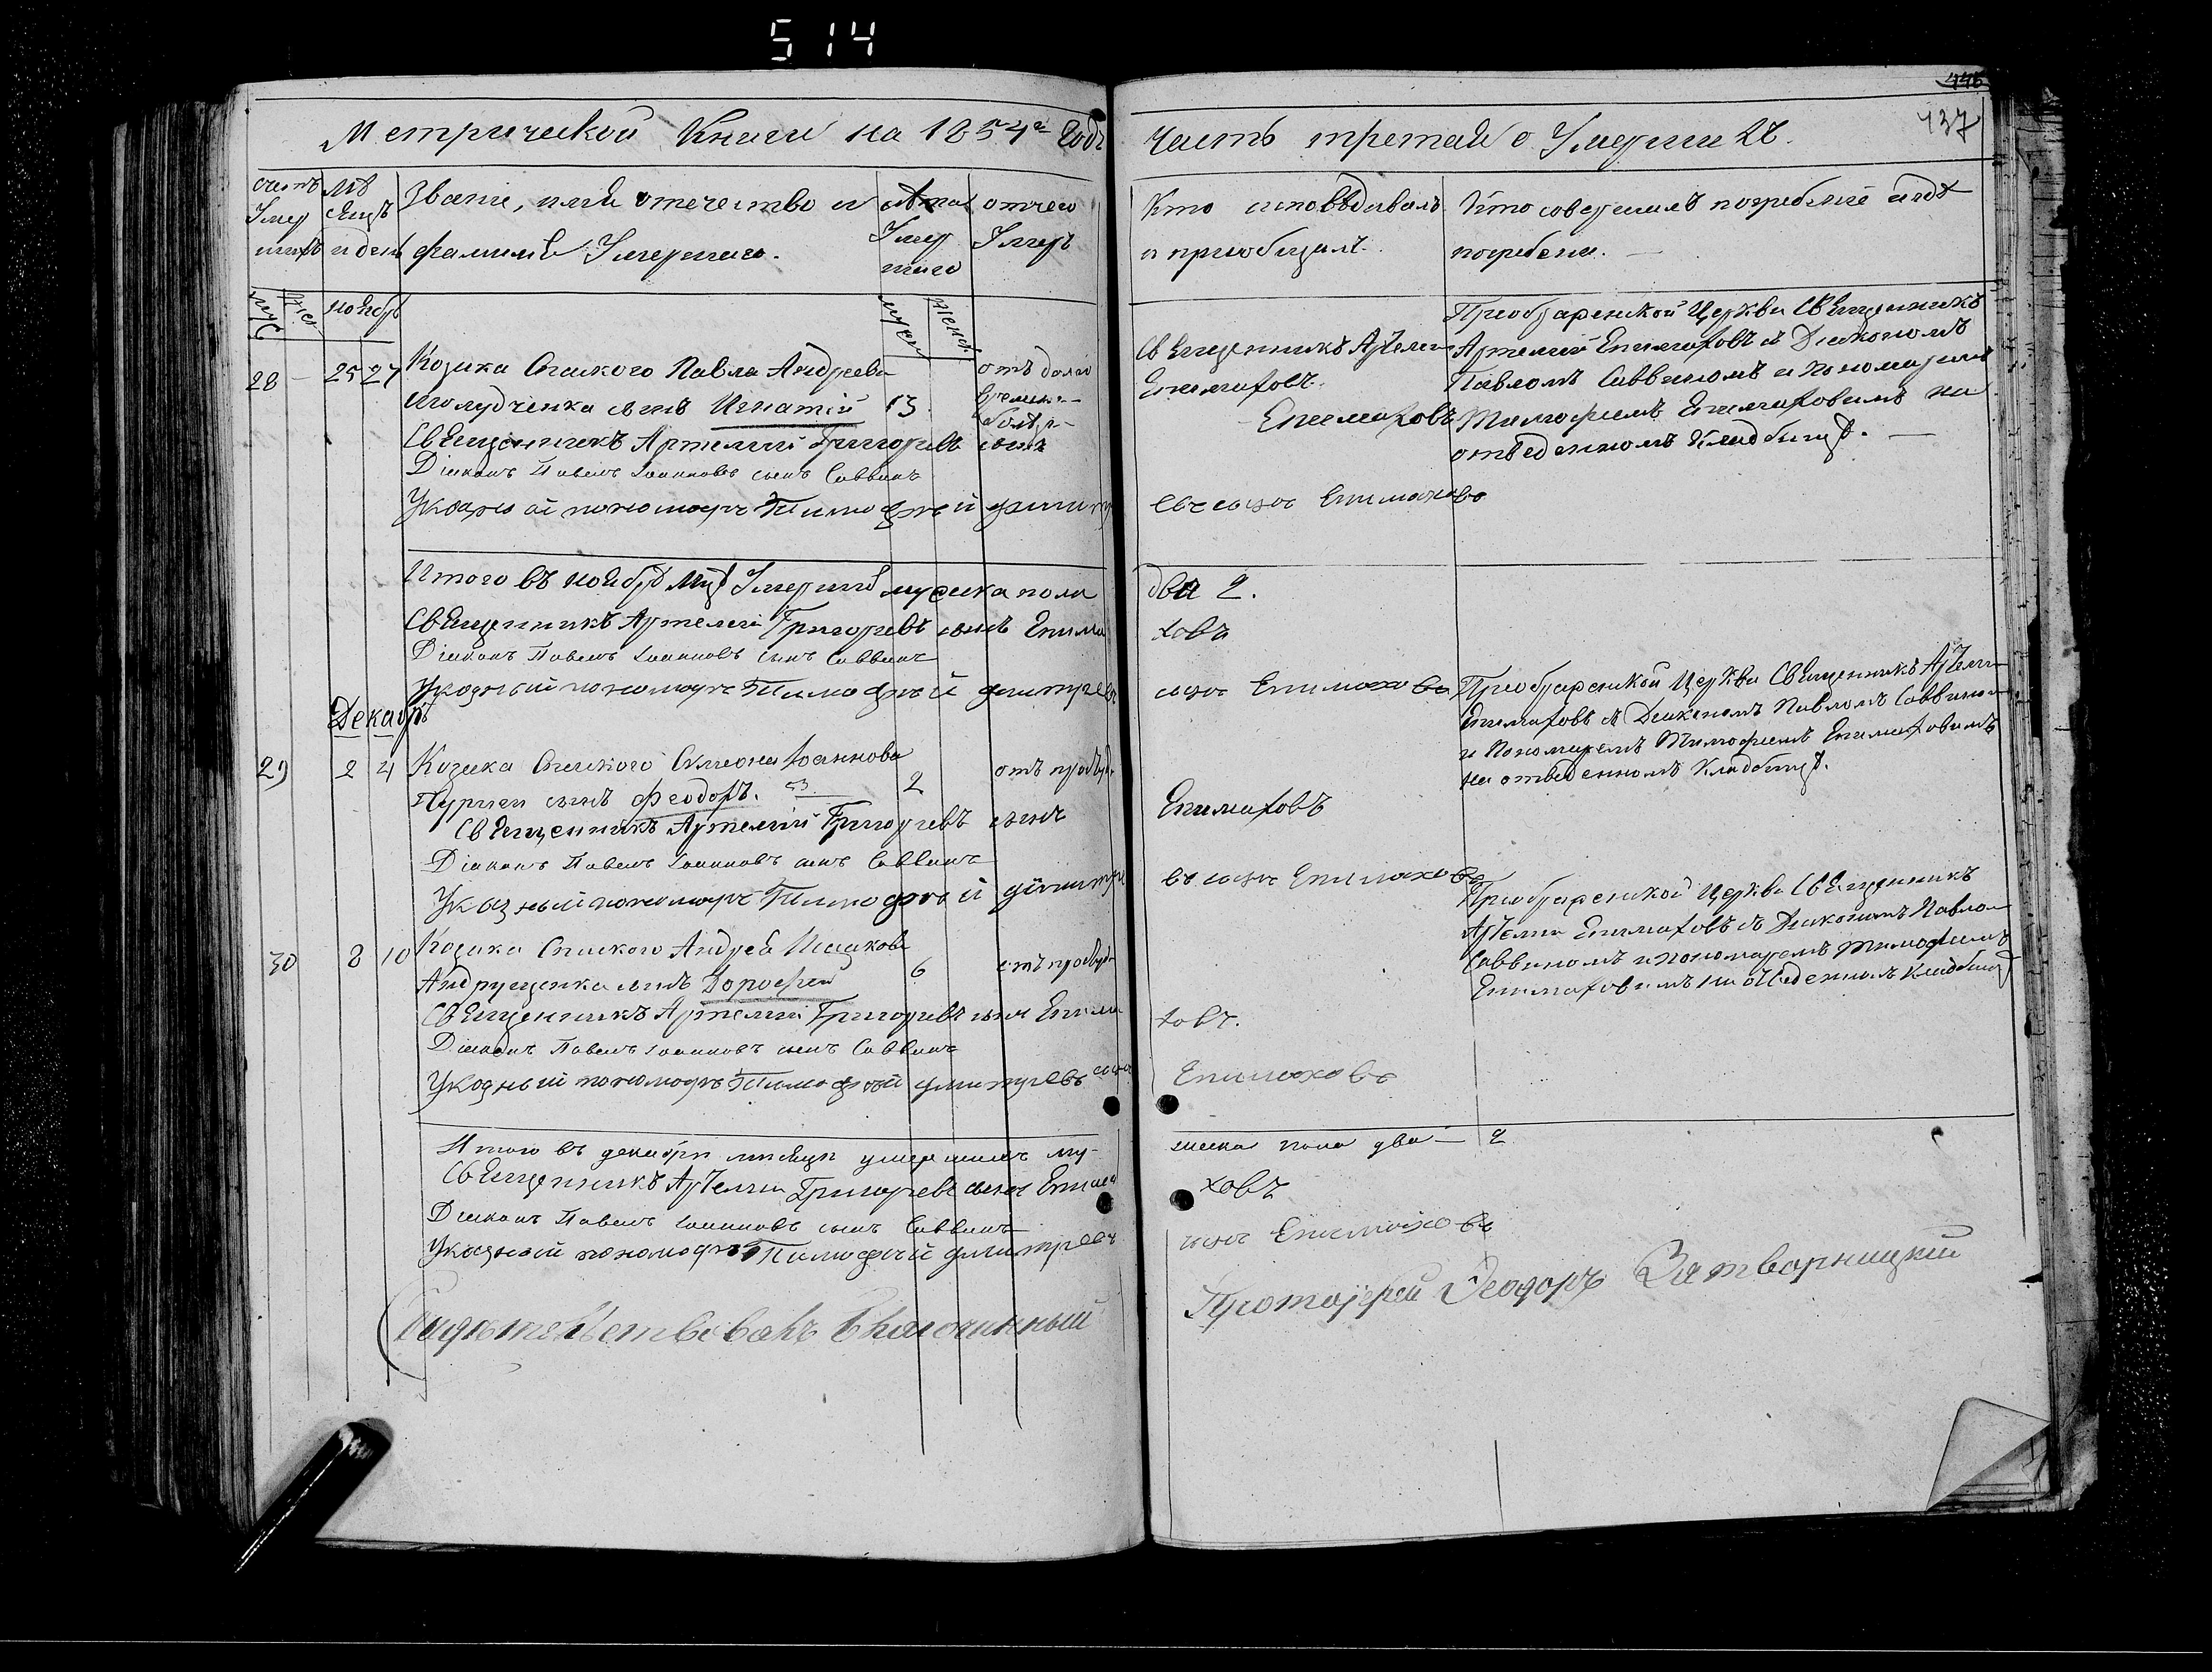 514
446
437
Метрической Книги на 1854й Годъ
Часть третая о Умершихъ.
счетъ Умершихъ
Мѣсяцъ и день
Званіе, имя отечество и фамилія Умершаго.
Лѣта Умершаго
отчего Умеръ
Кто исповѣдывалъ и пріобщалъ.
Кто совершилъ погребеніе и гдѣ погребены.
муж
жен
ноябр
мужск
женск
28 — 25 27 Козака Спаского Павла Андреева
сынъ Игнатій 13
отъ
Священникъ Артемій Григорьевъ сынъ
Епимаховъ
Діаконъ Павелъ Іоанновъ сынъ Саввинъ
Указный пономарь Тимофѣй Димитрі
евъ сынъ Епимаховъ
Священникъ Артемі
Епимаховъ.
Преображенской Церкви Священникъ
Артемій Епимаховъ съ Діакономъ
Павломъ Саввиномъ и пономаремъ
Тимофеемъ Епимаховымъ на
отведенномъ Кладбищѣ.
Итого въ ноябрѣ Мцѣ Умершихъ мужеска пола
два 2.
Священникъ Артемій Григорьевъ сынъ Епима
ховъ
Діаконъ Павелъ Іоанновъ сынъ Саввинъ
Указный пономарь Тимофѣй Димитріевъ
сынъ Епимаховъ
Декабрь
29 2 4 Козака Спаского Симеона Іоаннова
сынъ Феодоръ. 2
отъ
Священникъ Артемій Григорьевъ сынъ
Епимаховъ
Діаконъ Павелъ Іоанновъ сынъ Саввинъ
Указный пономарь Тимофѣй Димитріе
въ сынъ Епимаховъ
Преображенской Церкви Священникъ Артемі
Епимаховъ съ Діакономъ Павломъ Саввином
и Пономаремъ Тимофеемъ Епимаховымъ
на отведенномъ Кладбищѣ.
30 8 10 Козака Спаского Андрея Исаакова
Андрущенка сынъ Дорофей 6
отъ
Священникъ Артемій Григорьевъ сынъ Епима
ховъ.
Діаконъ Павелъ Іоанновъ сынъ Саввинъ
Указный пономарь Тимофѣй Димитріевъ сынъ
Епимаховъ
Преображенской Церкви Священникъ
Артеміи Епимаховъ съ Діакономъ Павлом
Саввиномъ и пономаремъ Тимофеемъ
Епимаховымъ на отведенномъ Кладбищѣ
Итого въ декабрѣ мѣсяцѣ умершихъ му-
жеска пола два — 2
Священникъ Артеміи Григорьевъ сынъ Епима
ховъ
Діаконъ Павелъ Іоанновъ сынъ Саввинъ
Указный пономарь Тимофѣй Димитріевъ
сынъ Епимаховъ
Свидѣтельствовалъ Благочинный
Протоіерей Ѳеодоръ Затворницкій